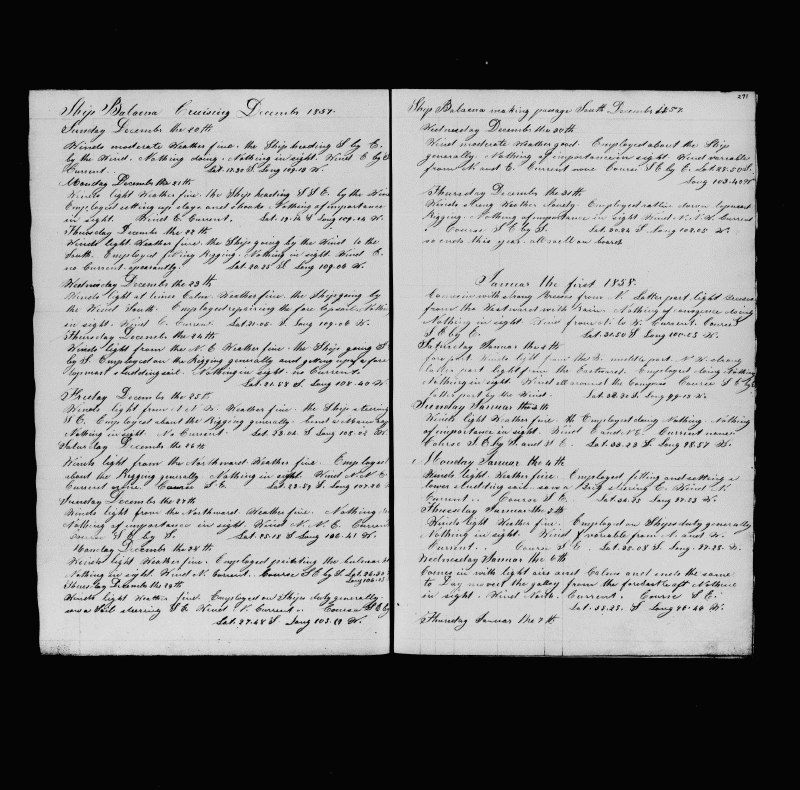 Ship Balaena Cruising December 1857.
Sunday December the 20th
Winds moderate Weather fine. the Ship heading S by E.
by the Wind. Nothing doing. Nothing in sight. Wind E by S
Current. Lat. 17.30 S. Long 109.13 W.
Monday December the 21th
Winds light Weather fine. the Ship heading S S E. by the Wind
Employed setting up stays and shooks Nothing of importance
in sight. Wind E. Current. Lat. 19.12 S. Long 109.04 W.
Thuesday December the 22th
Winds light Weather fine. the Ship going by the Wind to the
South. Employed fitting Rigging. Nothing in sight. Wind E.
no Current aparantly. Lat. 20.25 S. Long 109.06 W.
Wednesday December the 23th
Winds light at times Calm. Weather fine. the Ship going by
the Wind South. Employed repairing the fore topsail. Nothing
in sight. Wind E. Current. Lat. 21.06 S. Long 109.06 W.
Thursday December the 24th
Winds light from the N. E. Weather fine. the Ship going S
by S. Employed on the Rigging generally and getting up a fore
topmast studdingsail. Nothing in sight. no Current.
Lat. 21.58 S. Long 108.40 W.
Freday December the 25th
Winds light from N N W. Weather fine. the Ship steering
S E. Employed about the Rigging generally.
Nothing in sight. No Current. Lat. 23.04 S. Long 108.02 W.
Saturday December the 26th
Winds light from the Northward Weather fine. Employed
about the Rigging generally. Nothing in sight. Wind N. N. E.
Current none. Course S E. Lat. 23.59 S. Long 107.20 W
Sunday December the 27th
Winds light from the Northward Weather fine. Nothing do
Nothing of importance in sight. Wind N. N. E. Current
Course S E. by S. Lat. 25.18 S. Long 106.41 W.
Monday December the 28th
Winds light Weather fine. Employed painting the
Nothing in sight. Wind N. Current. Course S E. by S. Lat. 26.30
Long 106.15
Thuesday December the 29th
Winds light Weather fine. Employed on Ships duty generally.
saw a Sail steering S E. Wind N. Current. Course S E by
Lat. 27.48 S. Long 105.19 W.
291
Ship Balaena making passage South December 1857.
Wednesday December the 30th
Wind moderate Weather good. Employed about the Ship
generally. Nothing of importance in sight. Wind variable
from N. and E. Current none Course S E. by E. Lat. 28.50 S.
Long 103.40 W
Thursday December the 31th
Winds strong Weather Scudy. Employed rattling down topmast
Rigging. Nothing of importance in sight. Wind N. N. W. Current
Course S E. by S. Lat. 30.24 S. Long 102.05 W.
so ends this year. all well on board.
Januar the first 1858.
Comes in with strong Breeses from N. Latter part light
from the Westward with Rain. Nothing of consequence doing
Nothing in sight. Wind from N. to W. Current. Course
S E. by E. Lat. 31.50 S. Long 100.53 W.
Saturday Januar the 2th
fore part Winds light from the N. middle part N W. strong
latter part light from the Eastward. Employed doing Nothing
Nothing in sight. Wind all around the Compas Course S E by E
latter part by the Wind. Lat. 32.30 S. Long 99.13 W.
Sunday Januar the 3th
Winds light Weather fine. the Employed doing Nothing. Nothing
of importance in sight. Wind E. and N E. Current none
Course S. E. by S. and S E. Lat. 33.23 S. Long 98.57 W.
Monday Januar the 4th
Winds light. Weather fine. Employed fitting and setting a
lower studding sail. saw a Brig steering E. Wind N.
Current. Course S E. Lat. 34.25 Long 97.53 W.
Thuesday Januar the 5th
Winds light Weather fine. Employed on Ships duty generally
Nothing in sight. Wind favorable from N. and W.
Current. Course S E. Lat. 35.08 S. Long. 97.28. W.
Wednesday Januar the 6th
Comes in with light airs and Calms and ends the same
to Day we cut the galley from the foredeck aft Nothing
in sight. Wind Varb. Current. Course S E.
Lat. 35.23. S. Long 96.40 W.
Thursday Januar the 7th